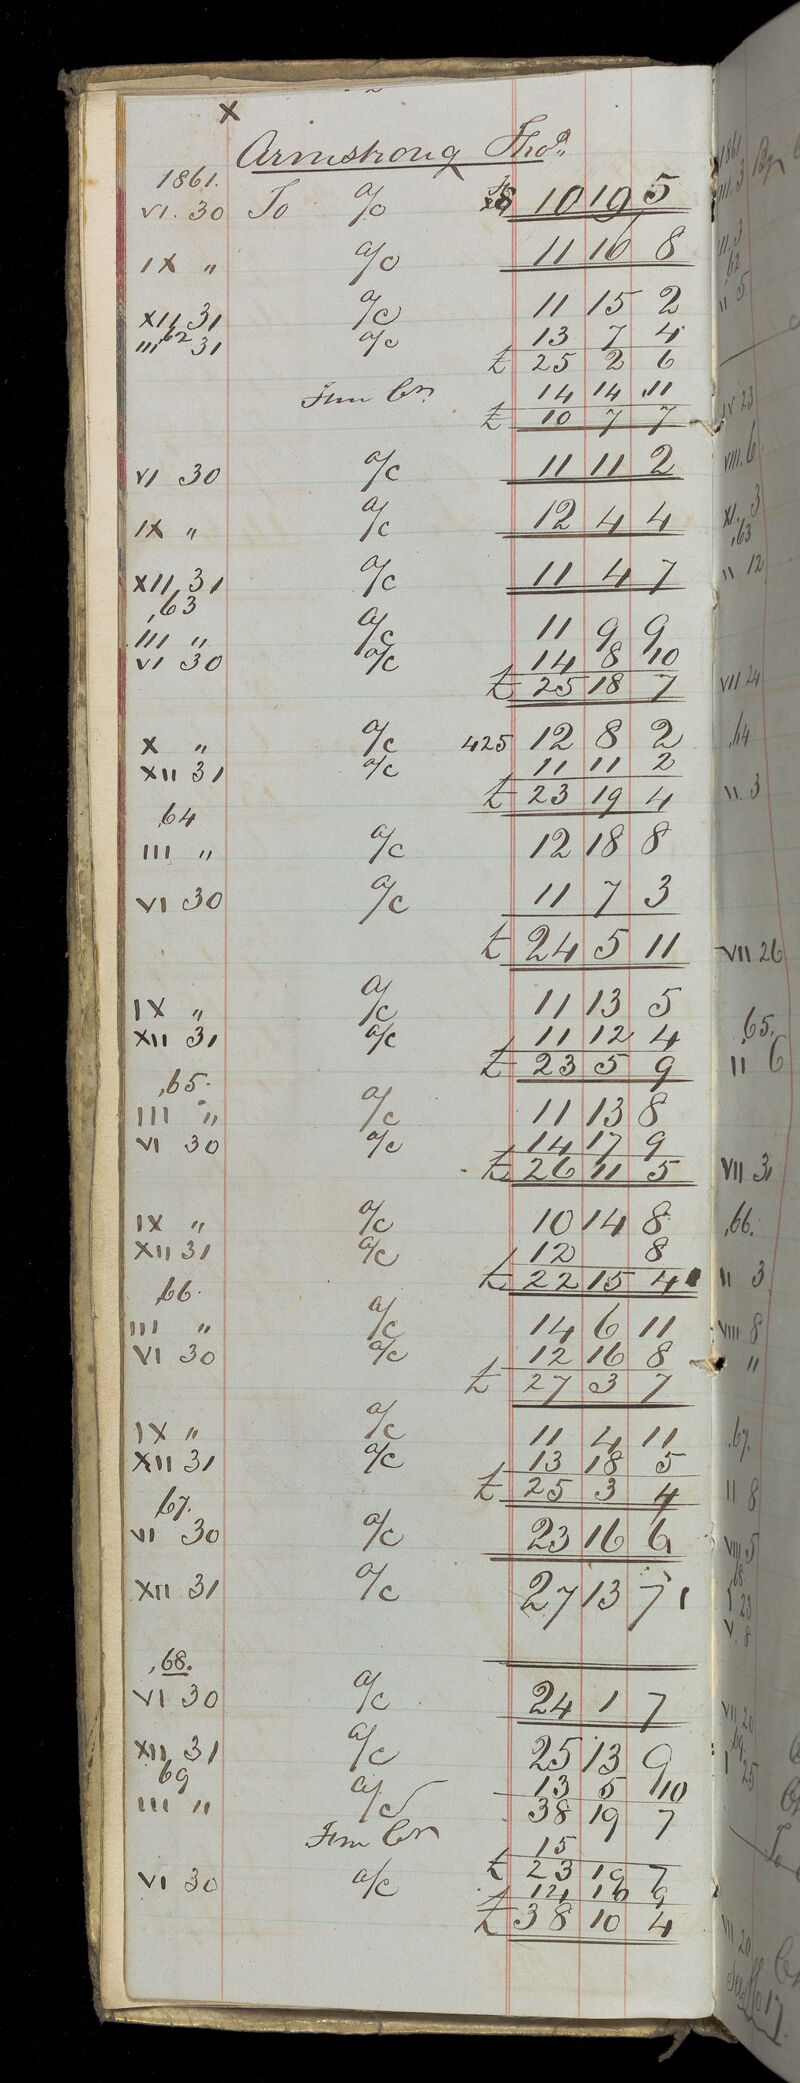 x
Armstrong Thos.
1861.
VI. 30 To a/c 10 19 5
IX " a/c 11 16 8
XII 31 a/c 11 15 2
,62
III 31 a/c 13 7 4
£ 25 2 6
Cr. 14 14 11
£ 10 7 7
VI 30 a/c 11 11 2
IX " a/c 12 4 4
XII 31 a/c 11 4 7
,63
III " a/c 11 9 9
VI 30 a/c 14 8 10
£ 25 18 7
X " a/c 425 12 8 2
XII 31 a/c 11 11 2
£ 23 19 4
,64
III " a/c 12 18 8
VI 30 a/c 11 7 3
£ 24 5 11
IX " a/c 11 13 5
XII 31 a/c 11 12 4
£ 23 5 9
,65.
III " a/c 11 13 8
VI 30 a/c 14 17 9
£ 26 11 5
IX " a/c 10 14 8
XII 31 a/c 12 8
£ 22 15 4
,66.
III " a/c 14 6 11
VI 30 a/c 12 16 8
£ 27 3 7
IX " a/c 11 4 11
XII 31 a/c 13 18 5
£ 25 3 4
,67.
VI 30 a/c 23 16 6
XII 31 a/c 27 13 7
,68.
VI 30 a/c 24 1 7
XII 31 a/c 25 13 9
69
III " a/c 13 5 10
38 19 7
Cr 15
£ 23 19 7
VI 30 a/c 14 16 9
£ 38 10 4
1861
III. 3 By
II 3
,62
II 5
IV 23
VIII. 6
XI. 3
,63
II 12
VII 24
,64
II. 3
VII 26
,65.
II 6
VII 31
,66.
II 3
VIII 8
"
,67.
II 8
VIII 5
,68
I 23
V. 8
VII 20
,69
I 25
VII 20